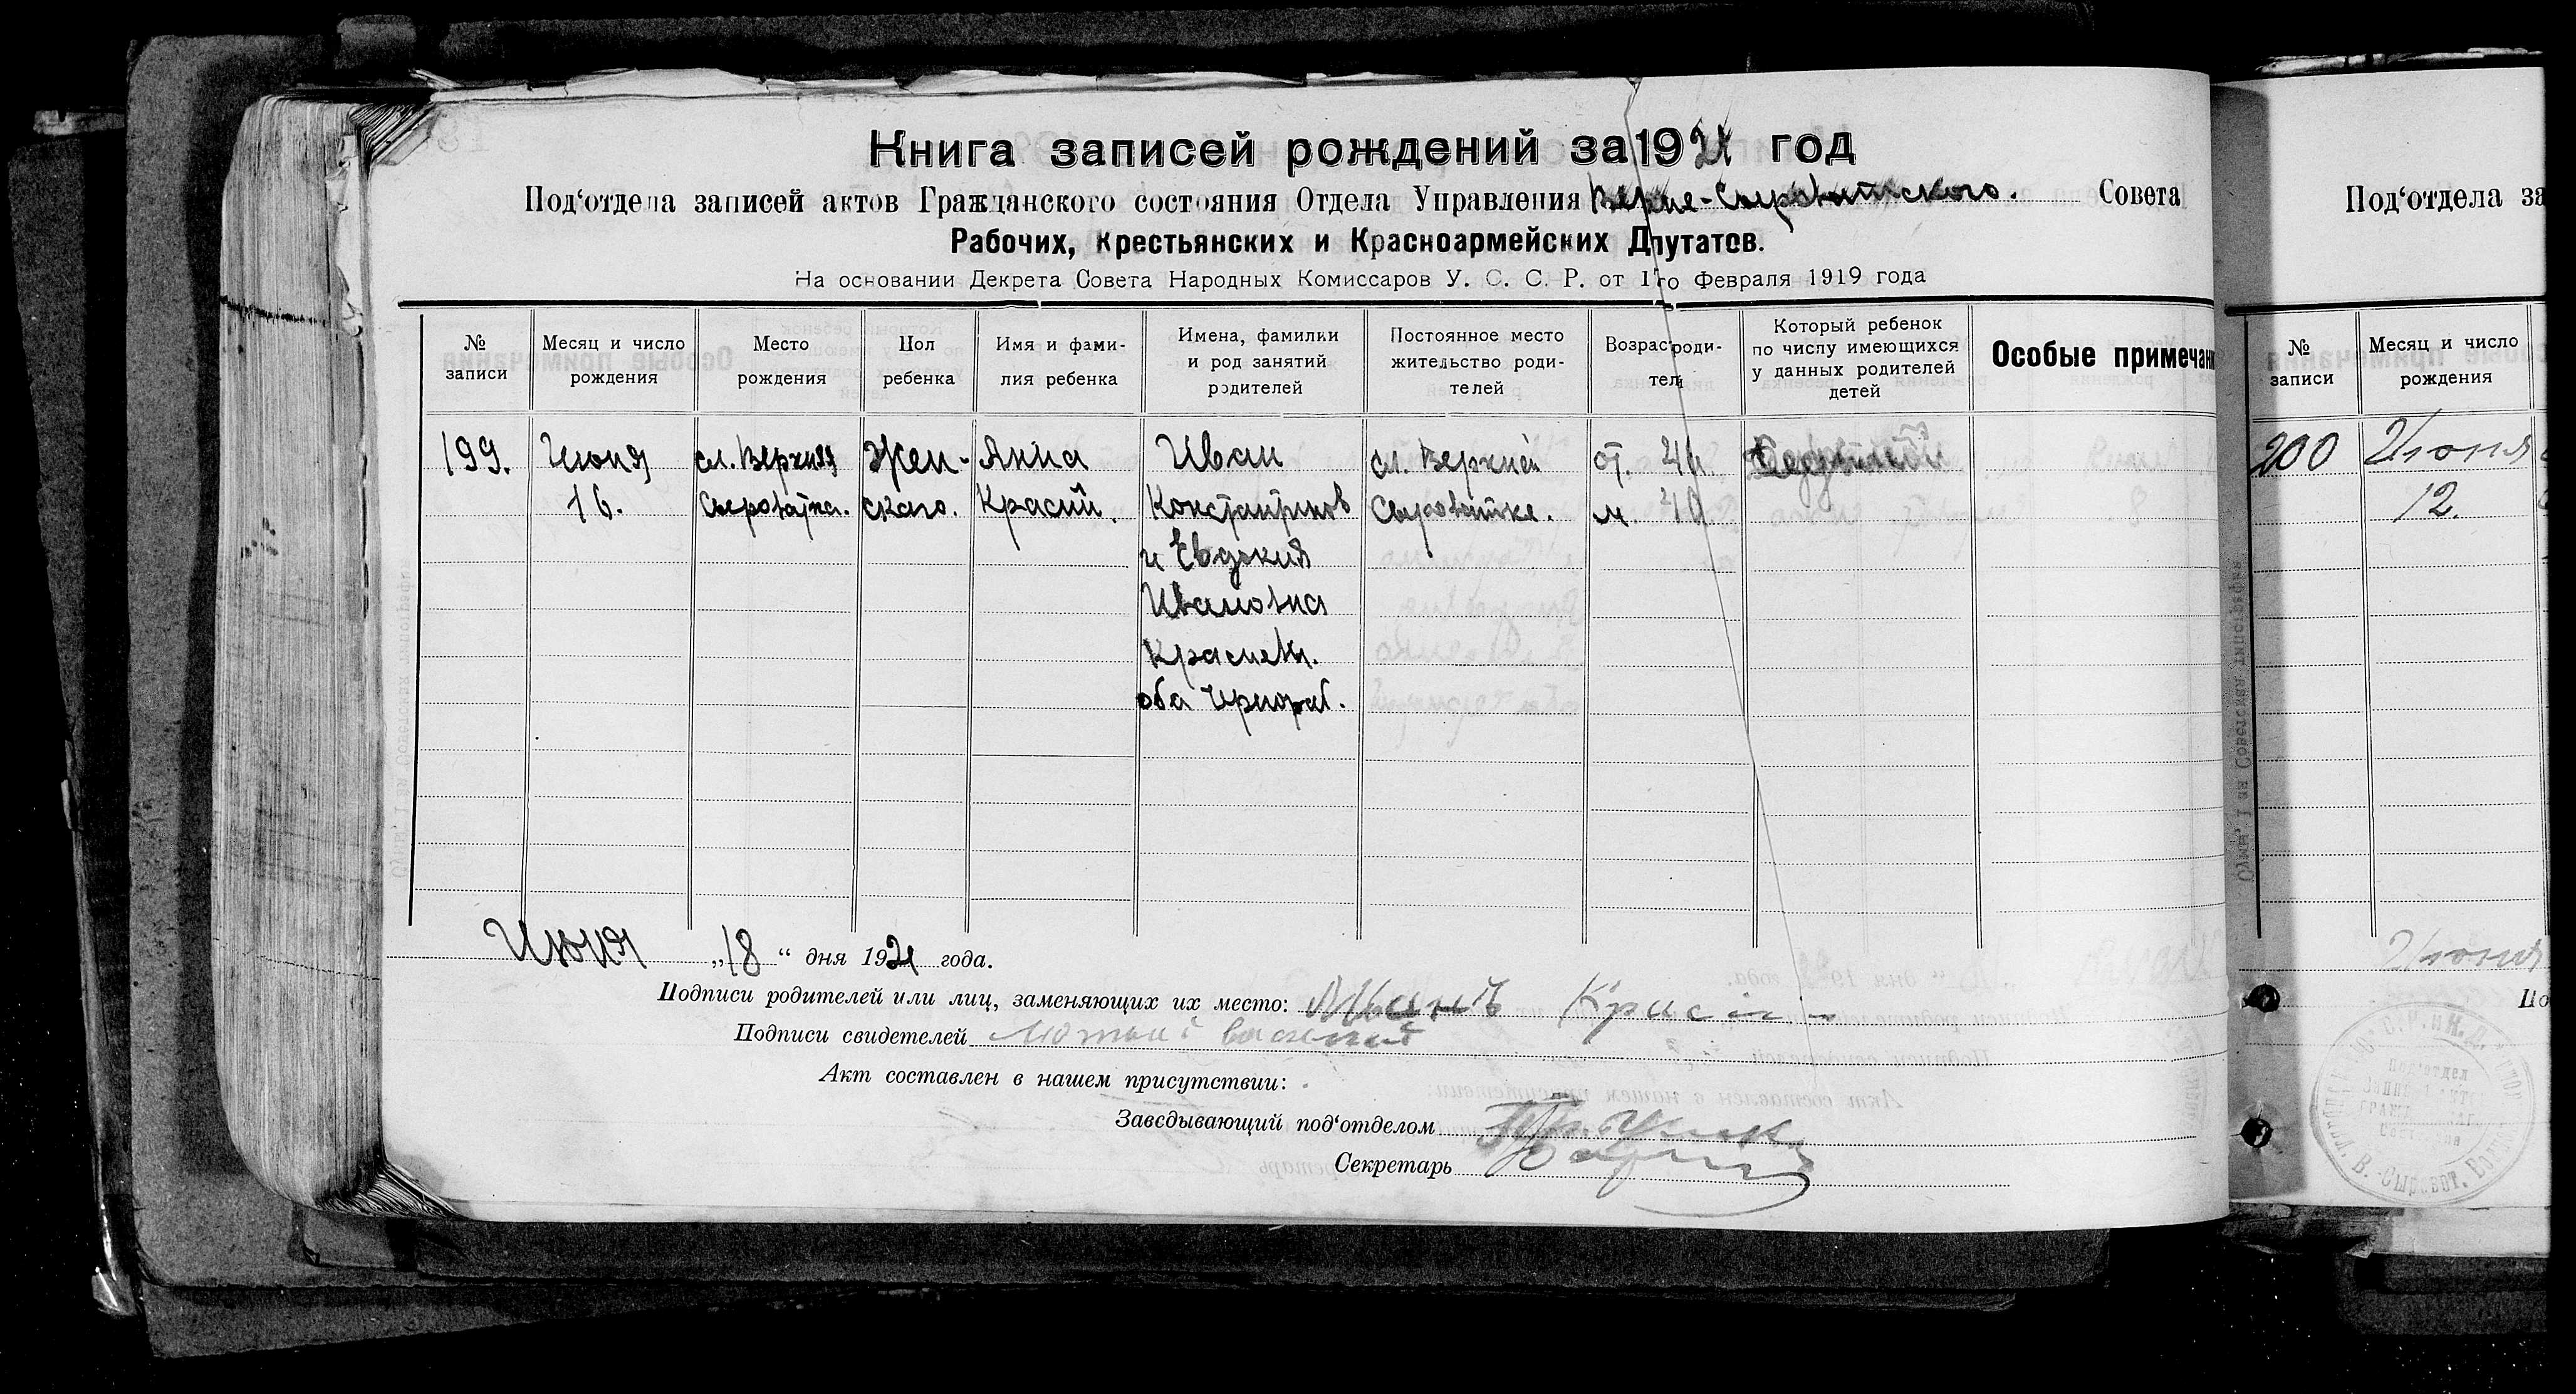 Книга записей рождений за 1921 год
Под‘отдела записей актов Гражданского состояния Отдела Управления Верхне-Сыроватского. Совета
Рабочих, Крестьянских и Красноармейских Дпутатов.
На основании Декрета Совета Народных Комиссаров У. С. С. Р. от 17го Февраля 1919 года
№ записи
Месяц и число рождения
Место рождения
Пол ребенка
Имя и фамилия ребенка
Имена, фамилки и род занятий родителей
Постоянное место жительство родителей
Возраст родители
Который ребенок по числу имеющихся у данных родителей детей
Особые примечан
199.
Июня
16.
сл. Верхняя
Сыроватка.
Жен-
скаго.
Анна
Красий.
Иван
Константинов
и Евдокия
Ивановна
Красиевы.
оба
сл. Верхней
Сыроватке.
от.
м. 40
Июня „18“ дня 1921 года.
Подписи родителей или лиц, заменяющих их место: Иванъ
Подписи свидетелей
Акт составлен в нашем присутствии:
Заведывающий под‘отделом
Секретарь
Под‘отдела за
№ записи
Месяц и число рождения
200
Июня
12.
Июня
По